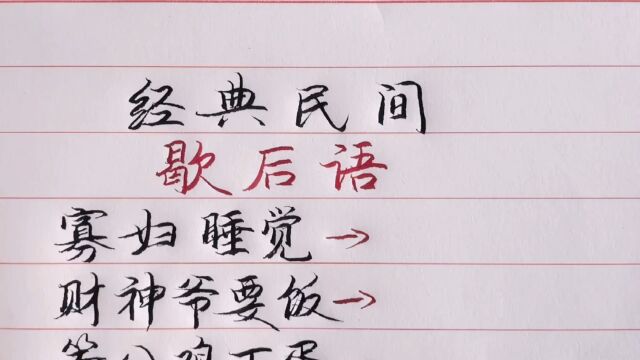 经典民间
歇后语
寡妇睡觉→
财神爷要饭→